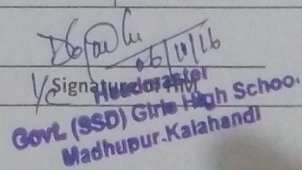 06/10/16
Signature of HM
Headmaster
Govt. (SSD) Girls High School
Madhupur-Kalahandi